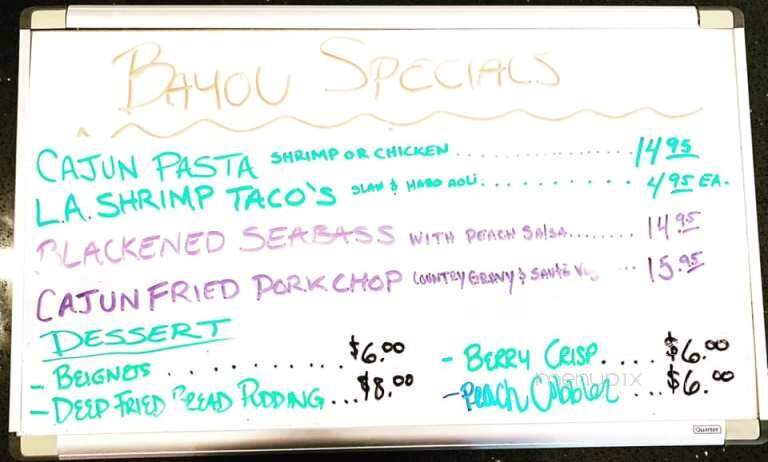 BAYOU SPECIALS
CAJUN PASTA SHRIMP OR CHICKEN ................ 14.95
L.A. SHRIMP TACO'S SLAW & HABO AOLI. .......... 4.95 EA.
BLACKENED SEABASS WITH PEACH SALSA........ 14.95
CAJUN FRIED PORK CHOP COUNTRY GRAVY & SAUTE ... 15.95
DESSERT
- BEIGNETS .......... $6.00
- DEEP FRIED BREAD PUDDING ... $8.00
- BERRY CRISP.... $6.00
- PEACH COBBLER .... $6.00
menupix
Quartet